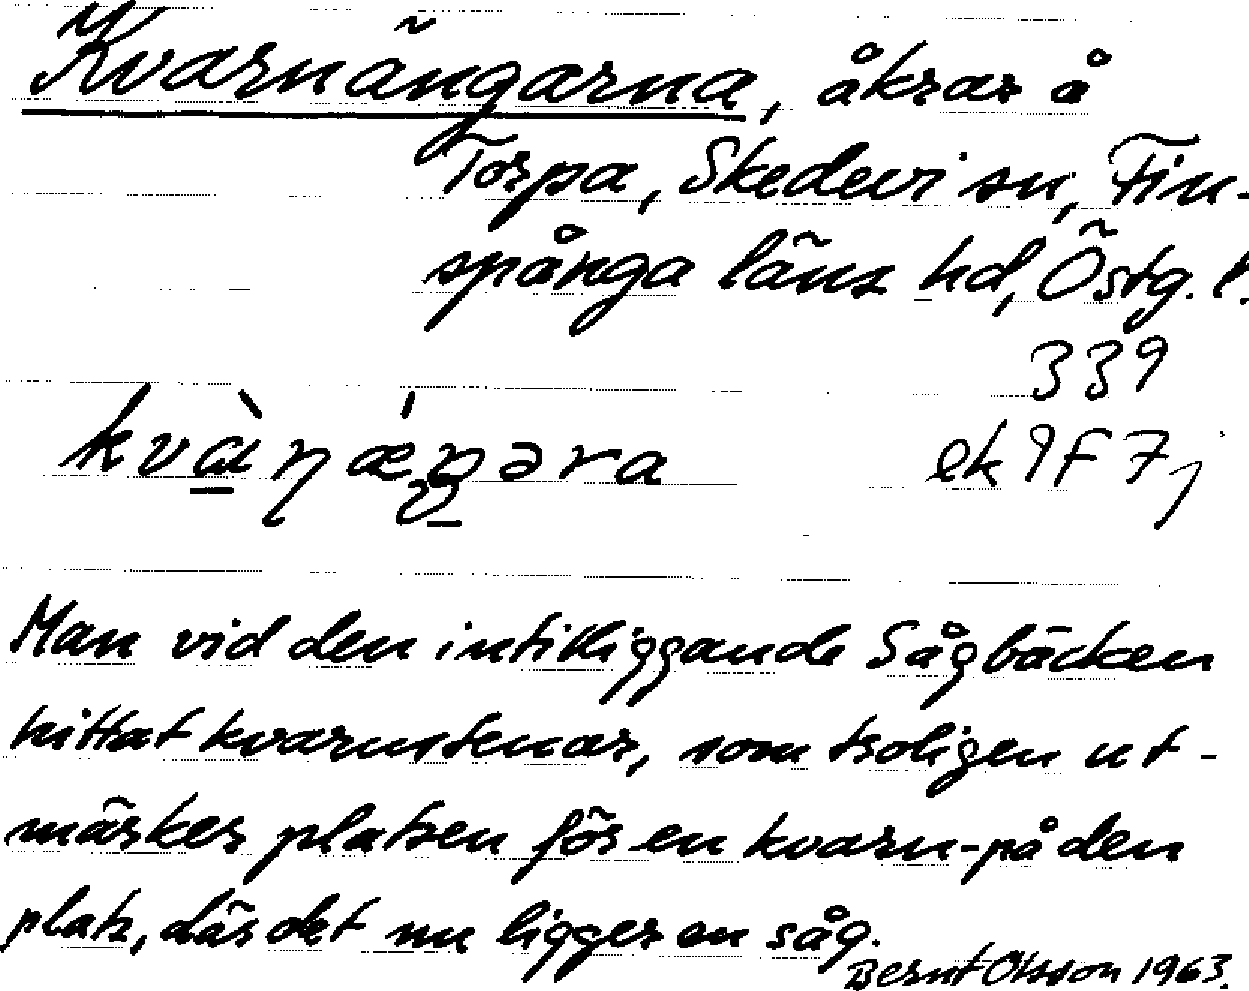 Kvarnängarna, åkrar å
Torpa, Skedevi sn, Fin-
spånga läns hd, Östg. l.
339
kvàɳæ̀ŋəra ek 9F7j
Man vid den intilliggande Sågbäcken
hittat kvarnstenar, som troligen ut-
märker platsen för en kvarn - på den
plats, där det nu ligger en såg.
Bernt Olsson 1963.